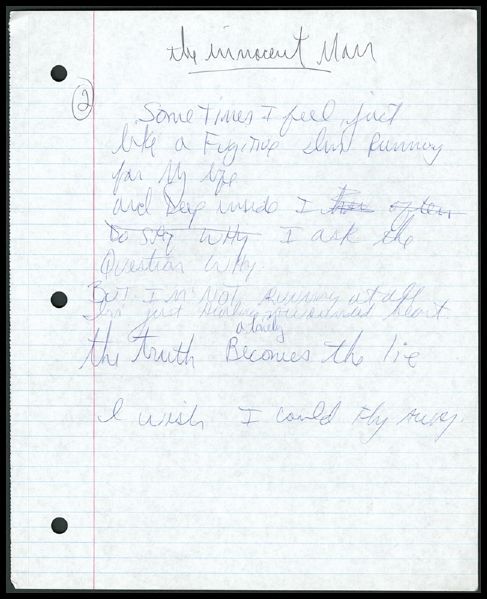 the innocent Man
2
Sometimes I feel just
like a Fugitive Im Running
for My life
and Deep inside I often
to say Why I ask the
Question Why.
But I'm Not Running at all
I'm just heart
a lonely
the truth Becomes the lie
I wish I could Fly Away.